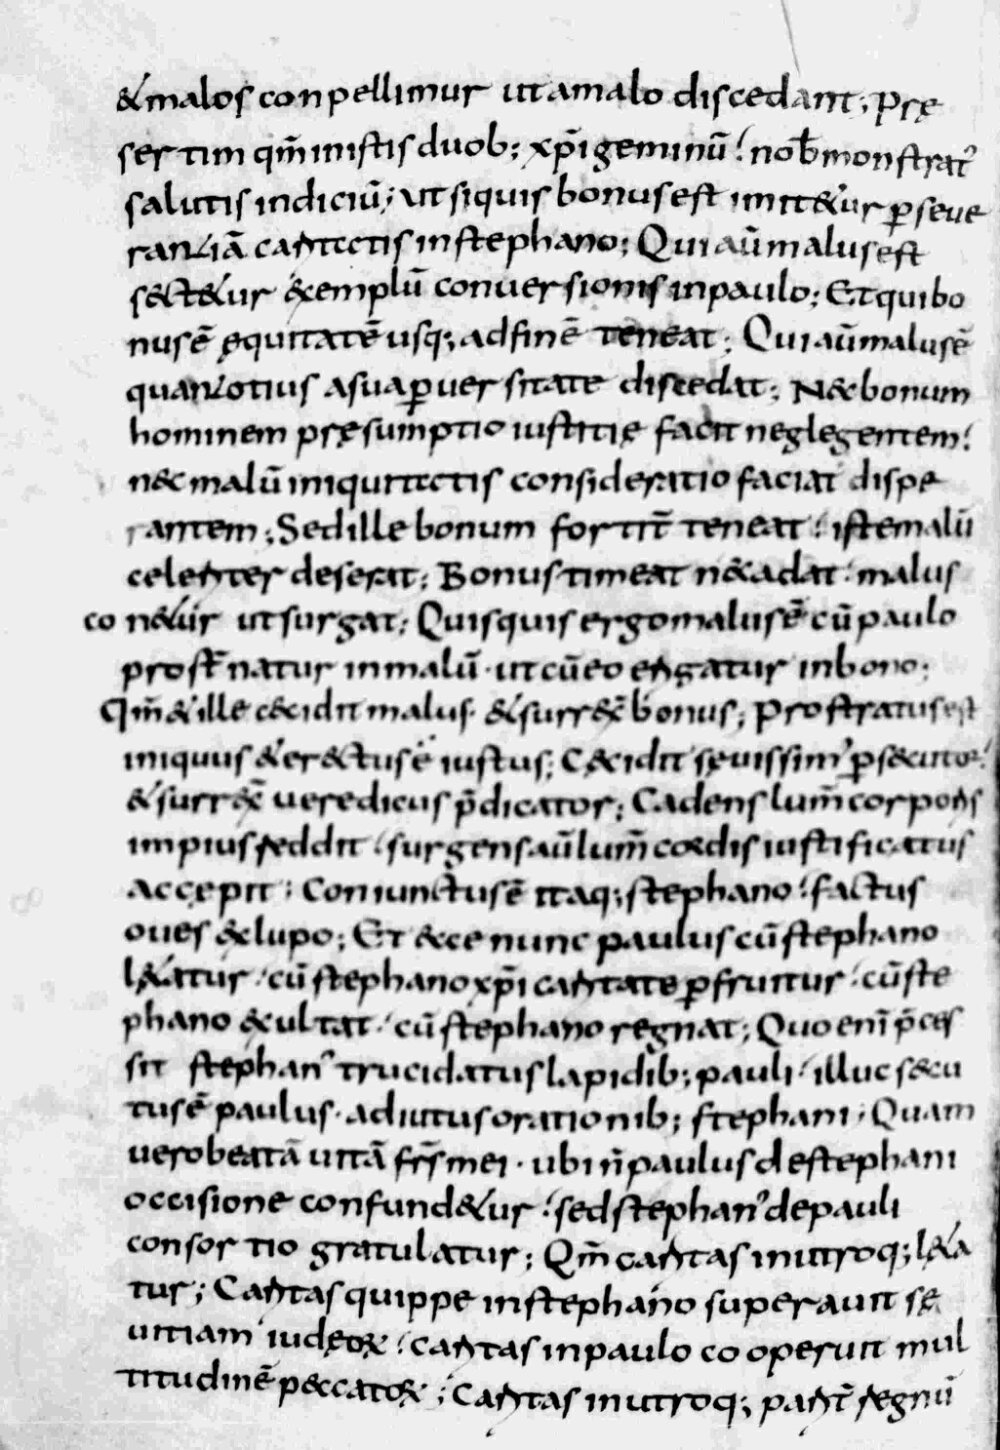 & malos conpellimur ut a malo discedant; Prę
sertim qm̄ in istis duob; xp̄i geminū nob̄ monstrat᾽
salutis indiciū; ut si quis bonus est imit&ur ꝑseue
rantiā caritatis in stephano; Qui aū malus est
sect&ur exemplū conuersionis in paulo; Et qui bo
nus ē ęquitatē usq; ad finē teneat; Qui aū malus ē
quantotius a sua ꝑuersitate discedat; N&c bonum
hominem pręsumptio iustitię facit neglegentem
nec malū iniquitatis consideratio faciat dispe
rantem; Sed ille bonum fortit̄ teneat iste malū
celeriter deserat; Bonus timeat ne cadat malus
con&ur ut surgat; Quisquis ergo malus ē cū paulo
prost̄natur in malū · ut cū eo erigatur in bono;
Qm̄ & ille cecidit malus · & surrex̄ bonus; Prostratus est
iniquus & erectus ē iustus; Cecidit sęuissim᾽ ꝑsecutor
& surrex̄ ueredicus p̄dicator; Cadens lum̄ corporis
impius reddit surgens aū lum̄ cordis iustificatus
accepit; Coniunctus ē itaq; stephano factus
oues ex lupo; Et ecce nunc paulus cū stephano
l&atur cū stephano xp̄i caritate ꝑfruitur cū ste
phano exultat cū stephano regnat; Quo enī p̄ces
sit stephan᾽ trucidatus lapidib; pauli illuc secu
tus ē paulus · adiutus orationib; stephani; Quam
uero beatā uitā fr̄s mei · ubi n̄ paulus de stephani
occisione confund&ur sed stephan᾽ de pauli
consortio gratulatur; Qm̄ caritas in utroq; l&a
tur; Caritas quippe in stephano superauit sę
uitiam iudeoꝝ caritas in paulo cooperuit mul
titudinē peccatoꝝ; Caritas in utroq; parit̄ regnū